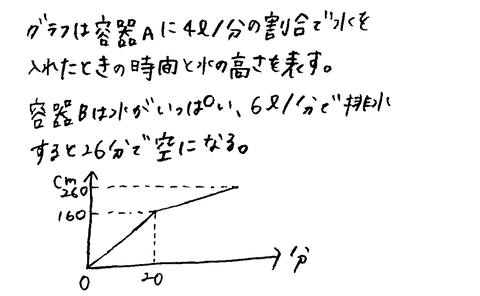 グラフは容器Aに4ℓ/分の割合で水を
入れたときの時間と水の高さを表す。
容器Bは水がいっぱい、6ℓ/分で排水
すると26分で空になる。
cm
260
160
0
20
分